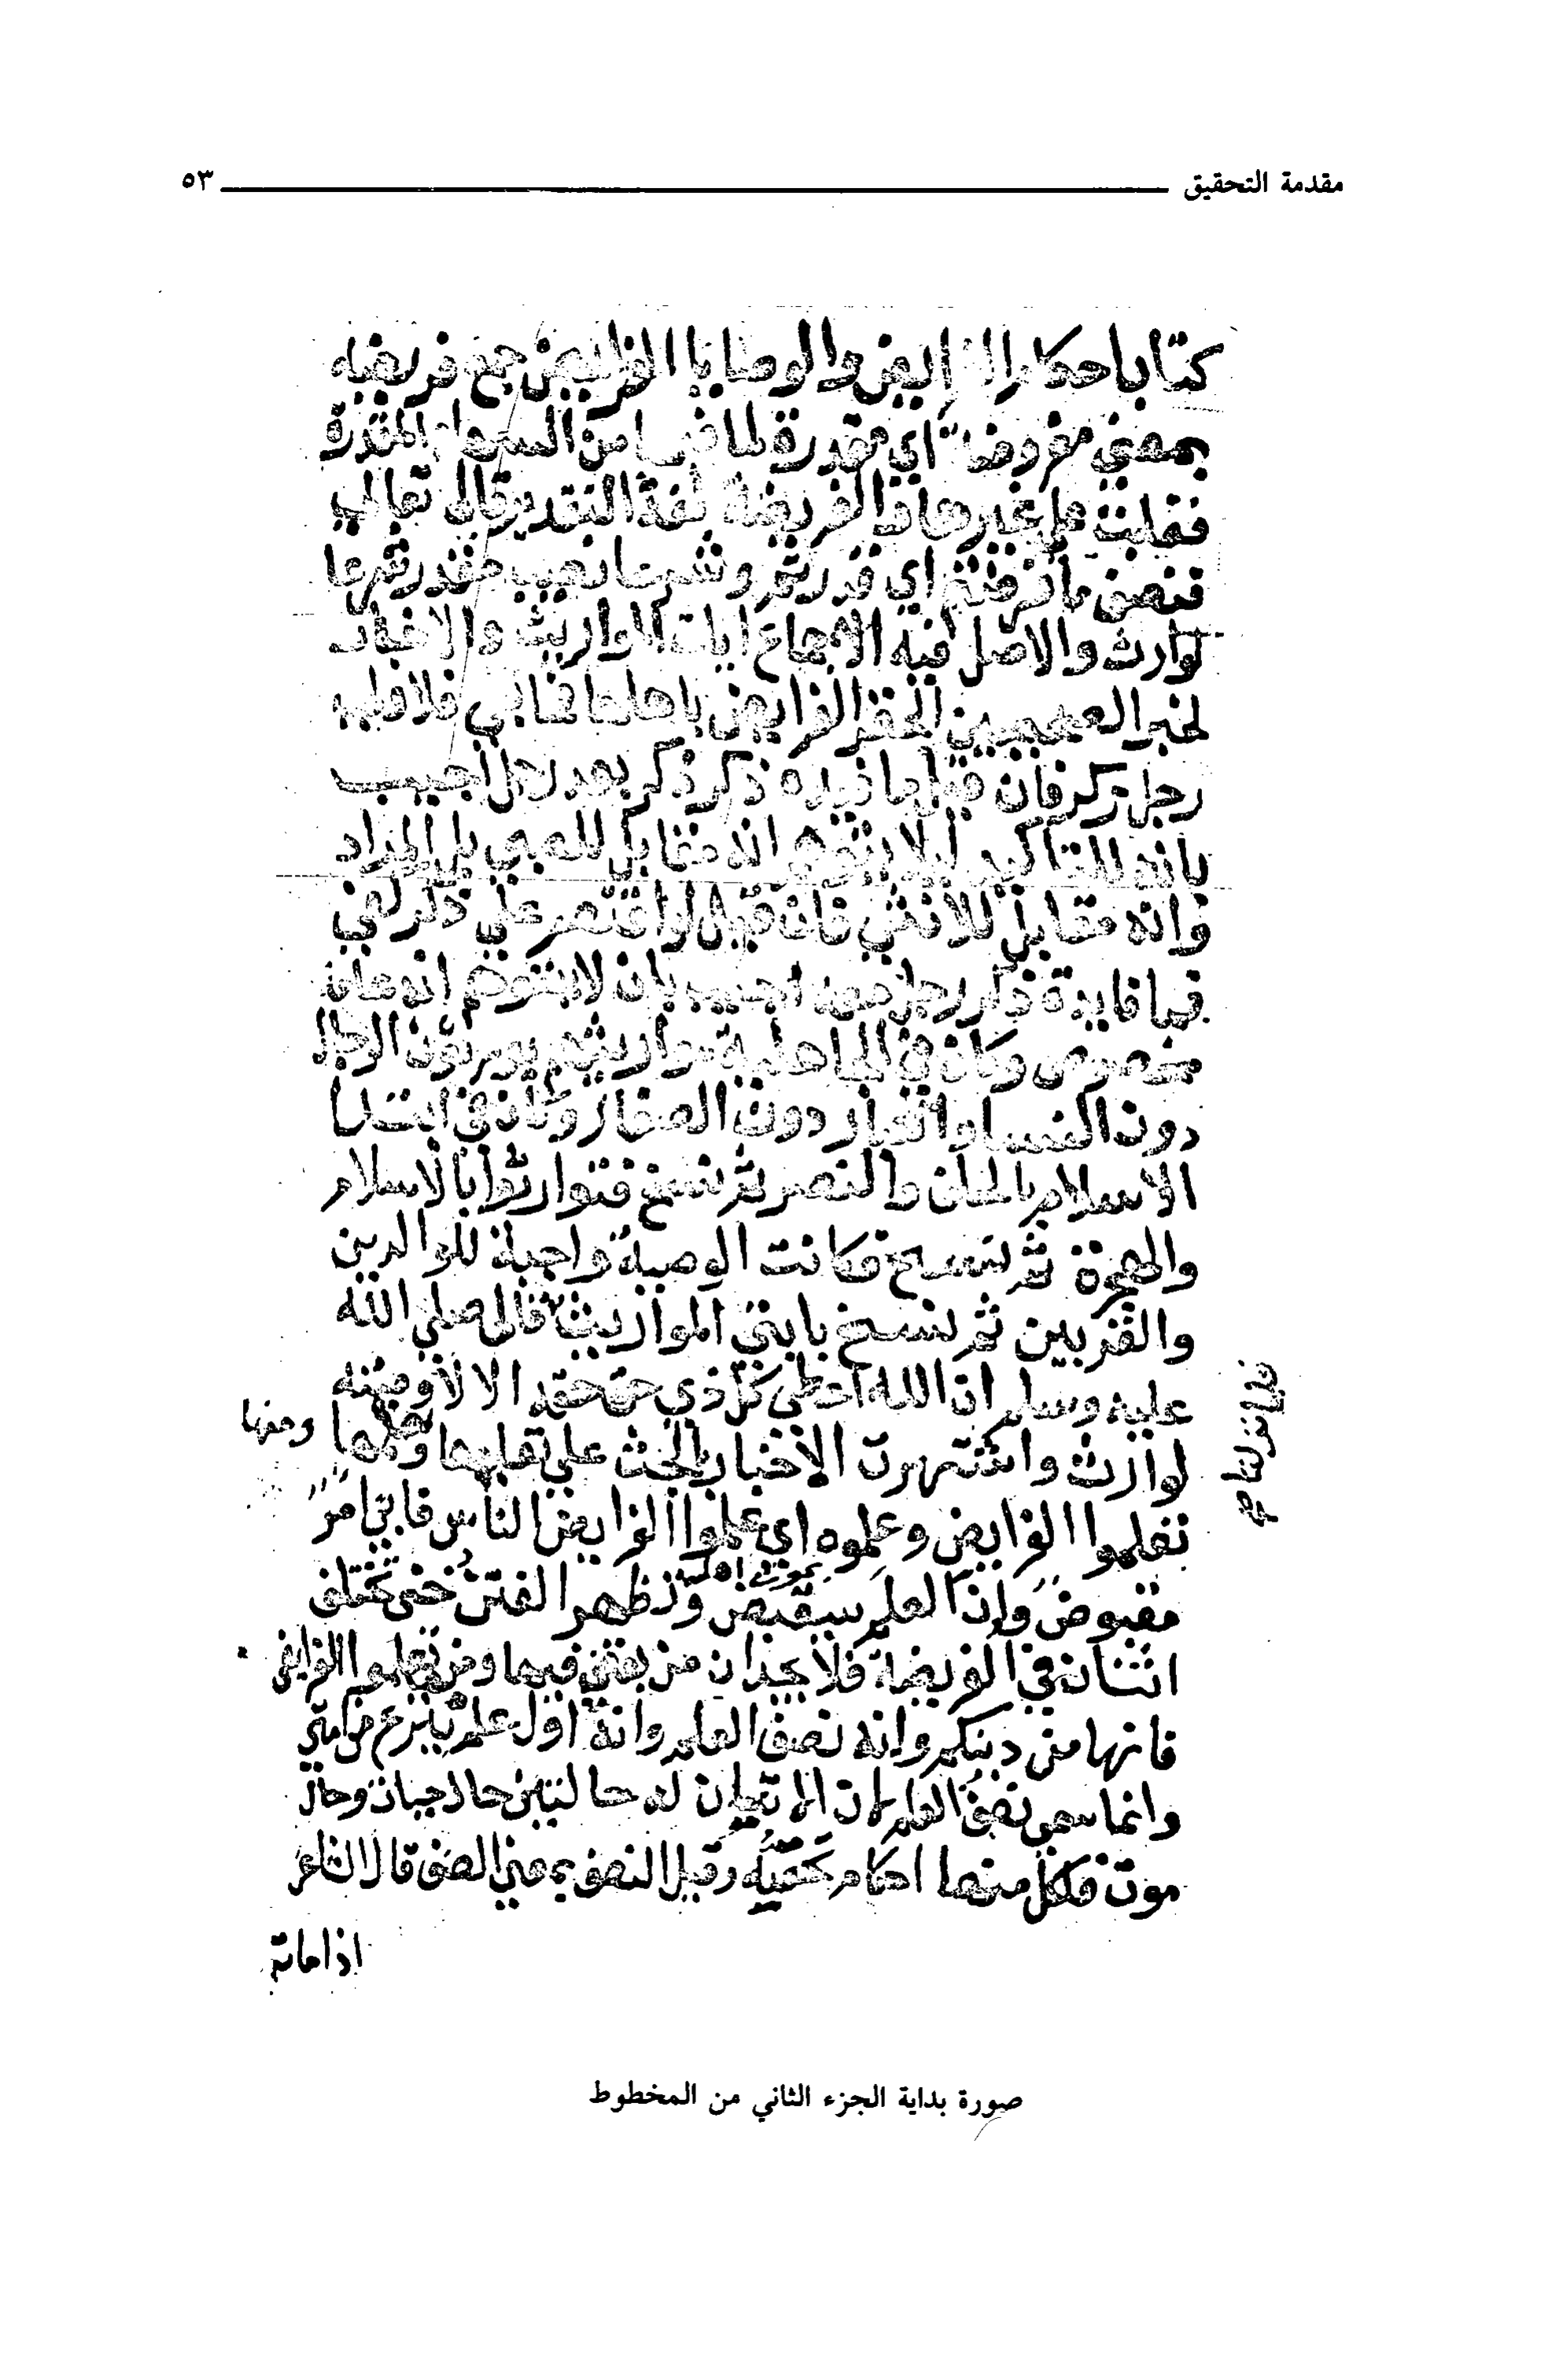 مقدمة التحقيق ٥٣
كتاب احكام الفرايض والوصايا الفرايض جمع فريضة
بمعني مفروضة اي مقدرة لما فيها من السهام المقدرة
فغلبت علي غيرها والفريضة لغة التقدير قال تعالي
فنصف ما فرضتم اي قدرتم وشرعا نصيب مقدر شرعا
لوارث والاصل فيه الاجماع ايات المواريث والاخبار
لخبر الصحيحين الحقوا الفرايض باهلها فما بقي فلاولي
رجل ذكر فان قيل ما فايدة ذكر ذكر بعد رجل اجيب
بانه للتاكيد ليلا يتوهم انه مقابل للصبي بل المراد
وانه مقابل للانثي فان قيل لو اقتصر علي ذكر لكفي
فما فايدة ذكر رجل معه اجيب بان لا يتوهم انه عام
مخصوص وكان في الجاهلية مواريثهم يورثون الرجال
دون النسا والكبار دون الصغار وكان في ابتدا
الاسلام بالحلف والنصر ثم نسخ فتوارثوا بالاسلام
والهجرة ثم نسخ فكانت الوصية واجبة للوالدين
والاقربين ثم نسخ بايتي المواريث قال صلي الله
عليه وسلم ان الله اعطي كل ذي حق حقه الا لا وصية
لوارث واشتهرت الاخبار بالحث علي تعليمها وتعلمها ومنها
تعلموا الفرايض وعلموه اي علموا الفرايض الناس فاني امرؤ
مقبوض وان العلم سيقبض وتظهر الفتن حتي يختلف
اثنان في الفريضة فلا يجدان من يفتي فيها ومن تعلموا الفرايض
فانها من دينكم وانه نصف العلم وانه اول علم ينزع من امتي
وانما سمي نصف العلم لان الانسان له حالتين حال حياة وحال
موت فلكل منهما احكام تخصه وقيل النصف بمعني الصنف قال الشاعر
اذا مات
صورة بداية الجزء الثاني من المخطوط